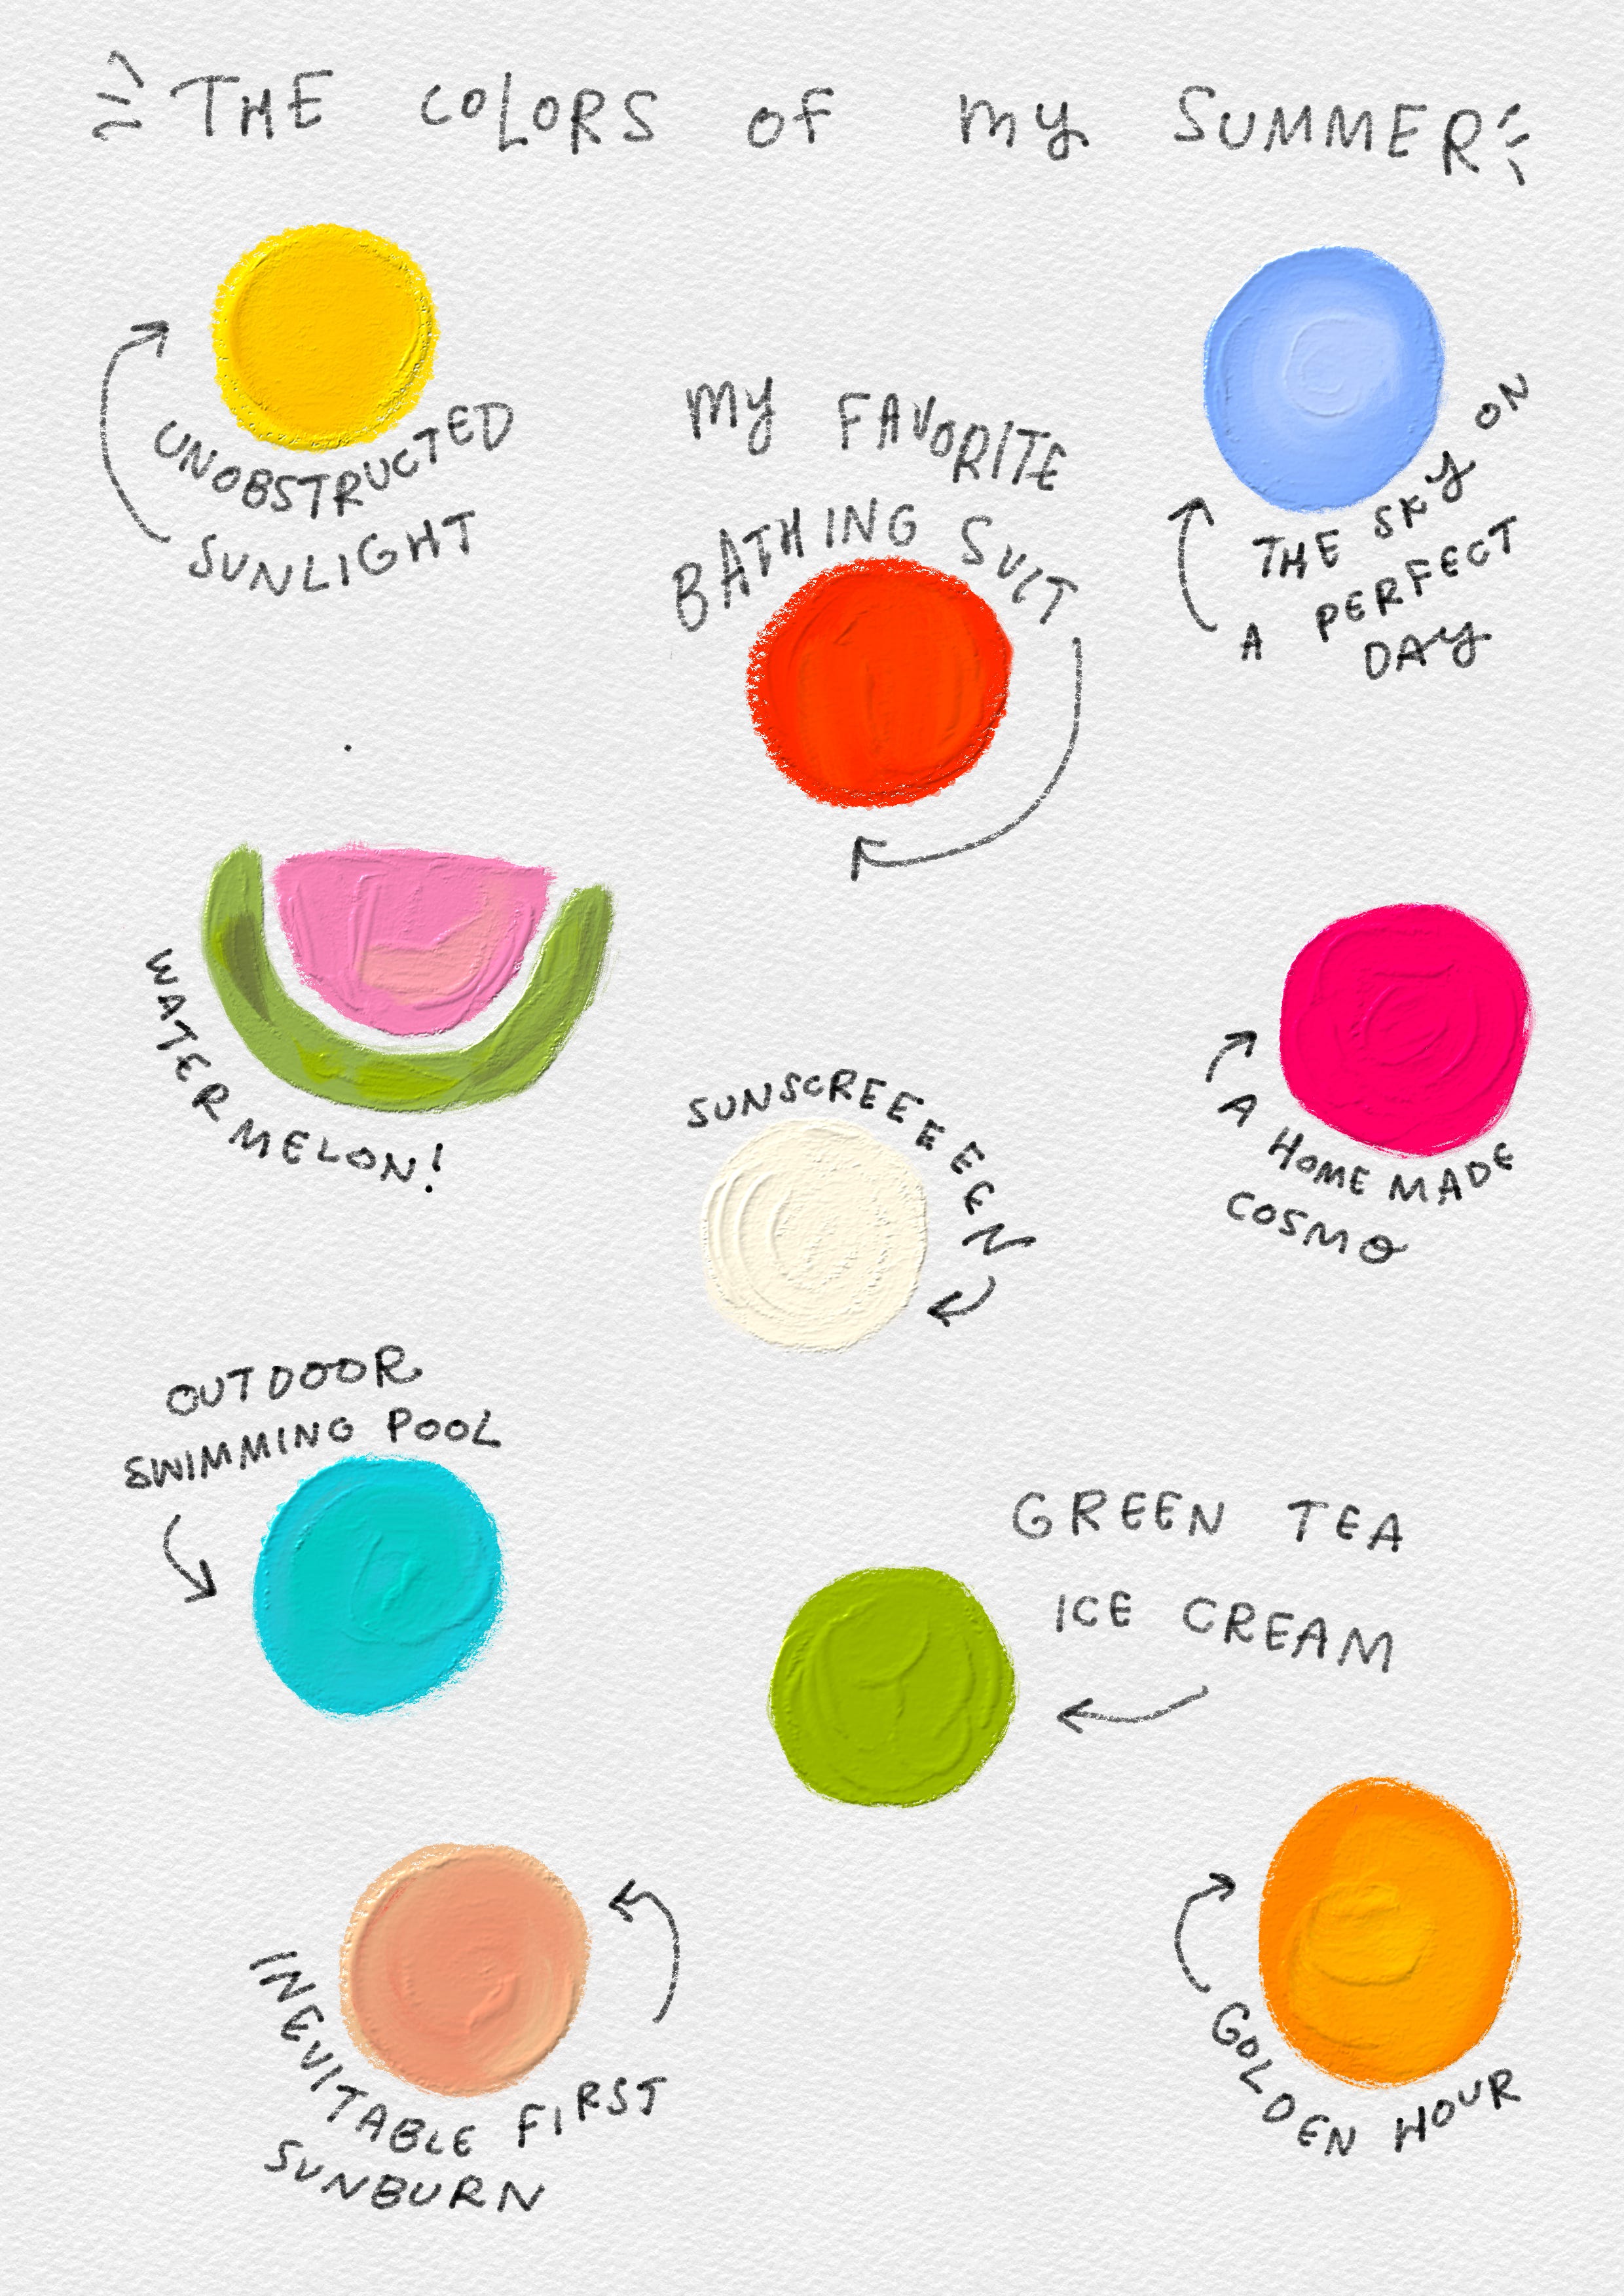 THE COLORS OF my SUMMER
UNOBSTRUCTED
SUNLIGHT
my FAVORITE
BATHING SUIT
THE SKY ON
A PERFECT
DAY
WATERMELON!
SUNSCREEEEEN
A HOMEMADE
COSMO
OUTDOOR
SWIMMING POOL
GREEN TEA
ICE CREAM
INEVITABLE FIRST
SUNBURN
GOLDEN HOUR